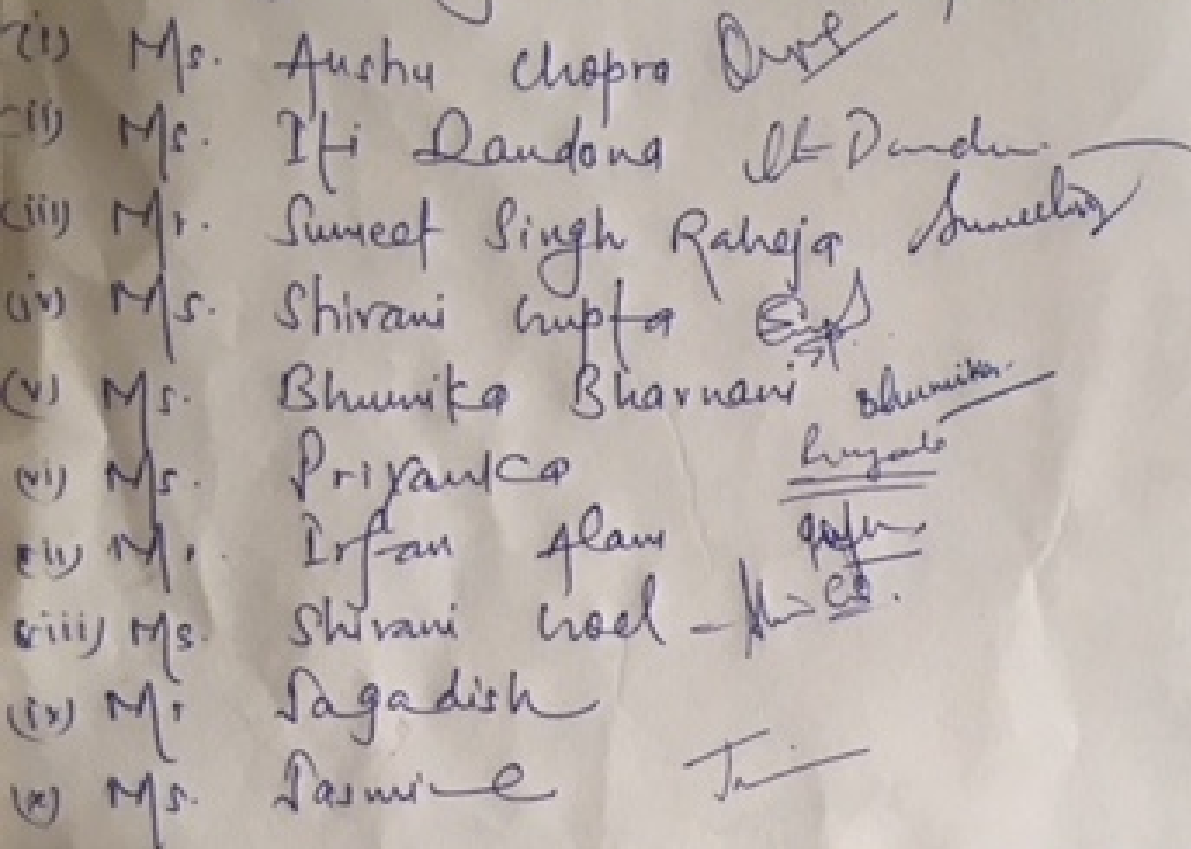 (i) Ms. Anshu Chopra
(ii) Ms. Iti Dandona
(iii) Mr. Sumeet Singh Raheja
(iv) Ms. Shivani Gupta
(v) Ms. Bhumika Bharnani Bhumika
(vi) Ms. Priyanka
(vii) Mr. Irfan Alam
(viii) Ms. Shivani Goel -
(ix) Mr Jagadish
(x) Ms. Jasmine